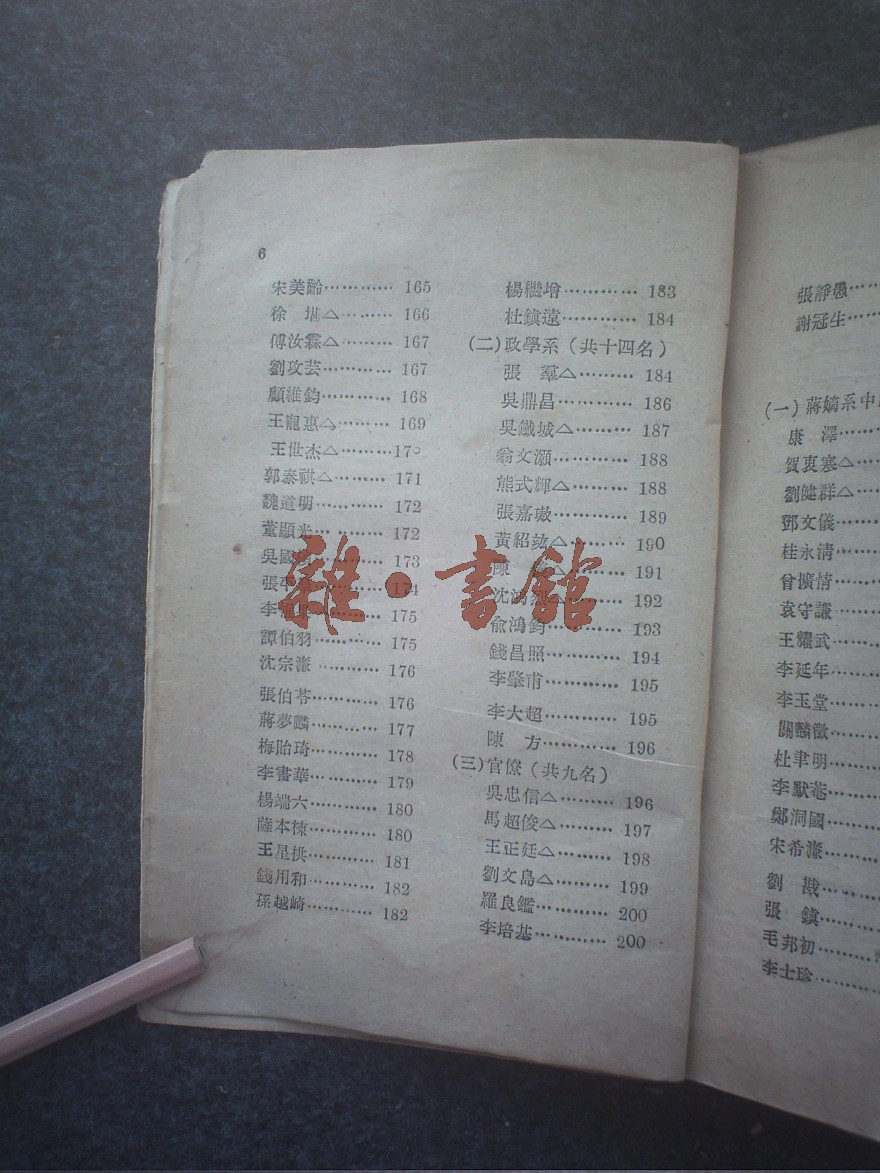 6
宋美齡………… 165
徐　堪△……… 166
傅汝霖△……… 167
劉攻芸………… 167
顧維鈞………… 168
王寵惠△……… 169
王世杰△………170
郭泰祺△……… 171
魏道明………… 172
董顯光………… 172
吳國 173
張平 174
李 175
譚伯羽………… 175
沈宗濂………… 176
張伯苓………… 176
蔣夢麟………… 177
梅貽琦………… 178
李書華………… 179
楊端六………… 180
薩本棟………… 180
王星拱………… 181
錢用和………… 182
孫越崎………… 182
楊繼增………… 183
杜鎮遠………… 184
(二)政學系(共十四名)
張　羣△……… 184
吳鼎昌………… 186
吳鐵城△……… 187
翁文灝………… 188
熊式輝△……… 188
張嘉璈………… 189
黃紹竑△……… 190
陳　 △……… 191
沈鴻烈△……… 192
俞鴻鈞………… 193
錢昌照………… 194
李肇甫………… 195
李大超………… 195
陳　方………… 196
(三)官僚(共九名)
吳忠信△……… 196
馬超俊△……… 197
王正廷△……… 198
劉文島△……… 199
羅良鑑………… 200
李培基………… 200
張靜愚……
謝冠生……
(一)蔣嫡系中
康　澤……
賀衷寒△…
劉健群△…
鄧文儀……
桂永清……
曾擴情……
袁守謙……
王耀武……
李延年……
李玉堂……
闕麟徵……
杜聿明……
李默菴……
鄭洞國……
宋希濂……
劉　戡……
張　鎮……
毛邦初……
李士珍……
雜·書館